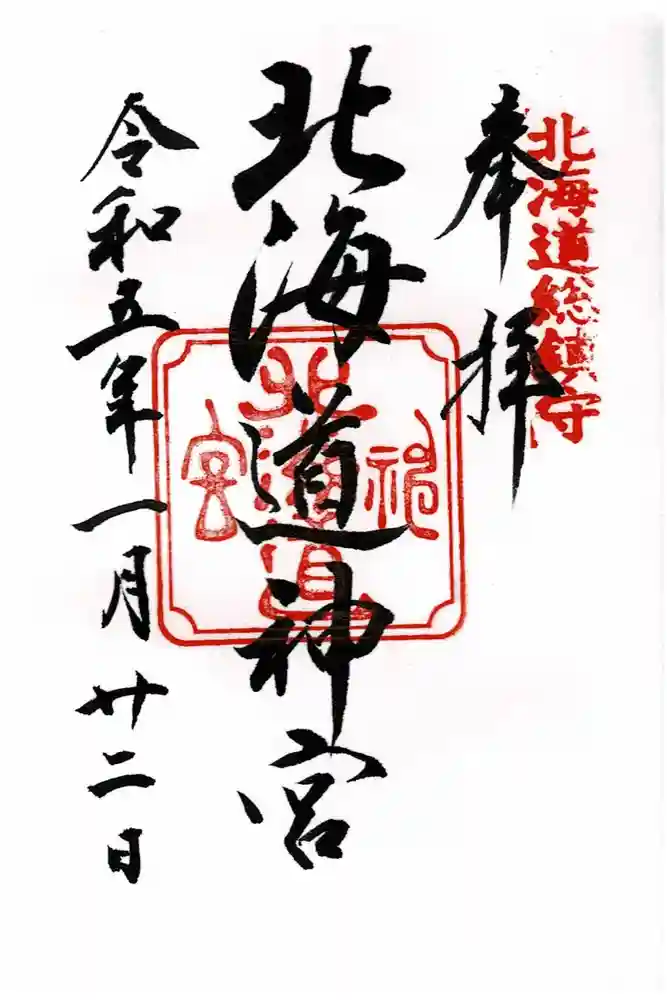 北海道総鎮守
奉拝
北海道神宮
北海道神宮
令和五年一月廿二日